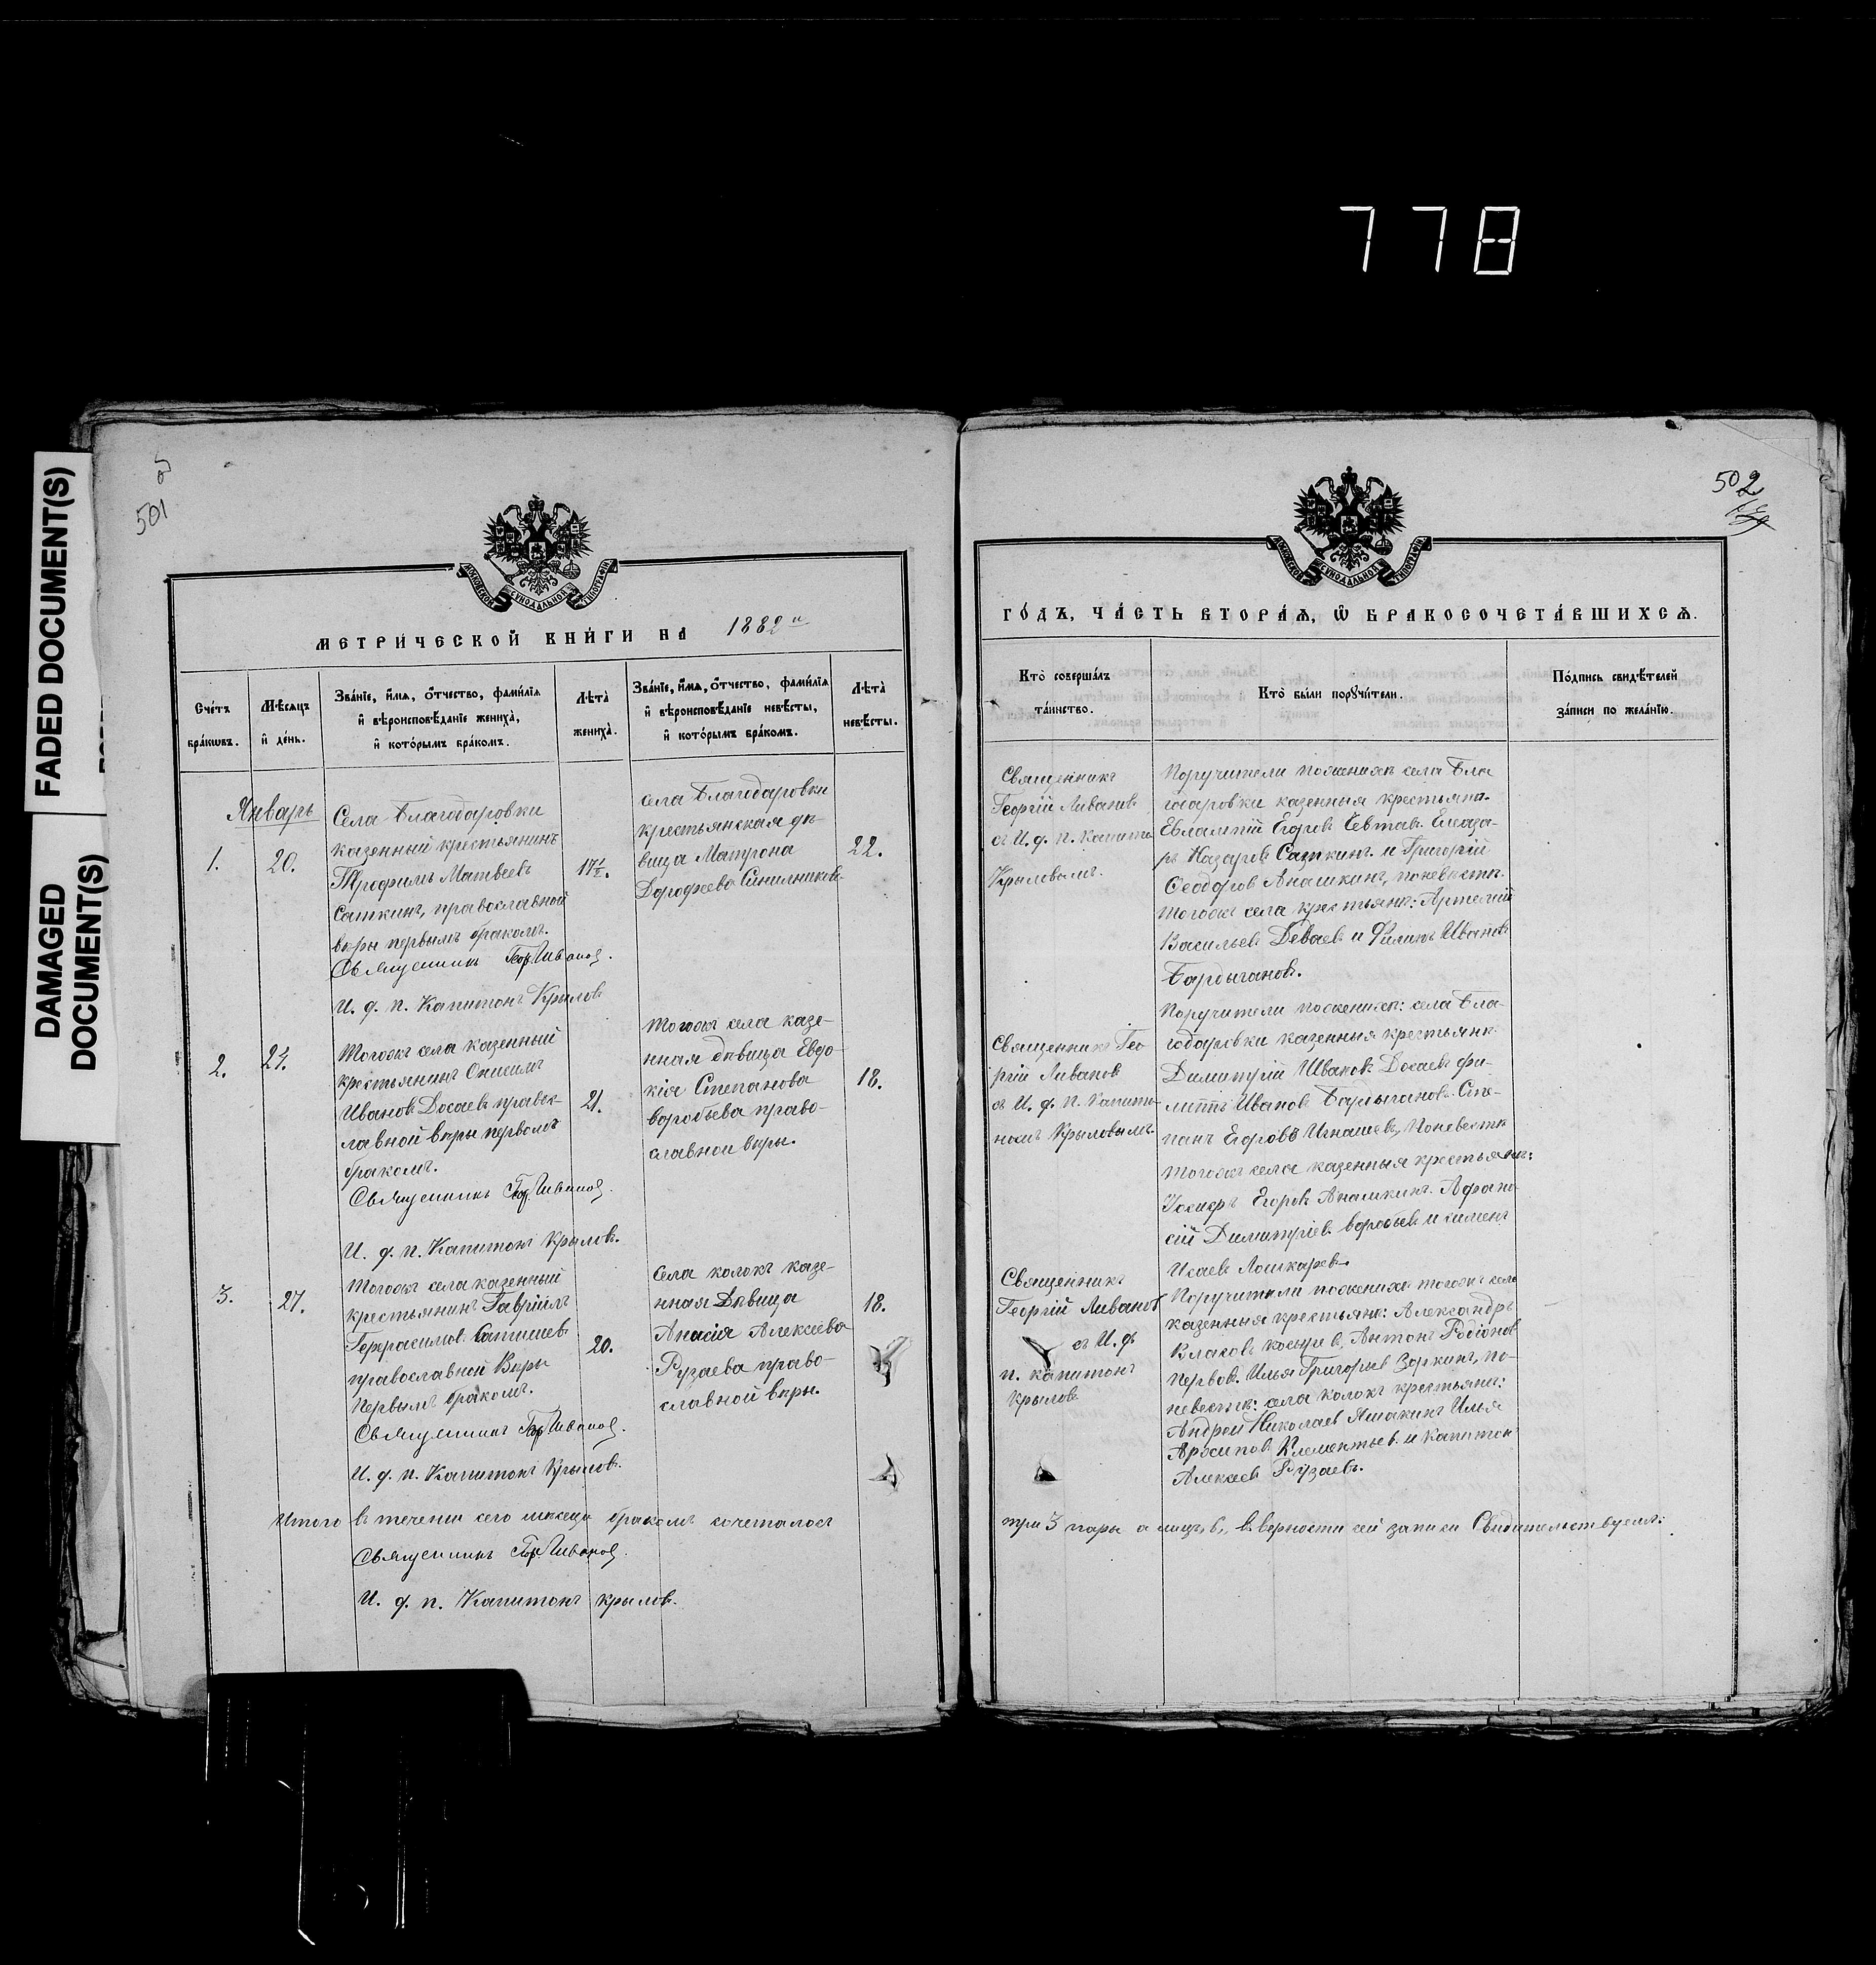 778
FADED DOCUMENT(S)
DAMAGED
DOCUMENT(S)
501
502
МОСКОВСКОЙ СѴНОДАЛЬНОЙ ТИПОГРАФІИ
МЕТРИ́ЧЕСКОЙ КНИ́ГИ НА 1882 й
Сче́тъ бра́кωвъ.
Мѣ́сяцъ и де́нь.
Зва́ніе, и́мѧ, о́тчество, фами́лїѧ и вѣроисповѣ́даніе жениха̀, и кото́рымъ бра́комъ.
Лѣта̀ жениха̀.
Зва́ніе, и́мѧ, о́тчество, фами́лїѧ и вѣроисповѣ́даніе невѣ́сты, и кото́рымъ бра́комъ.
Лѣта̀ невѣ́сты.
Январь
1.
20.
Села Благодаровки
казенный крестьянинъ
Трофимъ Матвеевъ
Саткинъ, православной
вѣры первымъ бракомъ.
Священникъ Геор. Ливановъ.
И. д. п. Капитонъ Крыловъ
17½.
села Благодаровки
крестьянская дѣ-
вица Матрона
Дорофеева Синильникова
22.
2.
24.
Тогожъ села казенный
крестьянинъ Онисимъ
Ивановъ Досаевъ правос-
лавной вѣры первымъ
бракомъ.
Священникъ Геор. Ливановъ.
И. д. п. Капитонъ Крыловъ.
21.
Тогожъ села казе-
нная дѣвица Евдо-
кія Степанова
воробьева право-
славной вѣры.
18.
3.
27.
Тогожъ села казенный
крестьянинъ Гавріилъ
Герасимовъ
православной Вѣры
Первымъ бракомъ.
Священникъ Геор. Ливановъ.
И. д. п. Капитонъ Крыловъ.
20.
Села колокъ казе-
нная Дѣвица
Анасія Алексеева
Рузаева право-
славной вѣры.
18.
Итого в течении сего месеца бракомъ сочеталось
Священникъ Геор. Ливановъ.
И. д. п. Капитонъ крыловъ.
ГО́ДЪ, ЧА́СТЬ ВТОРА́Ѧ, Ѽ БРАКОСОЧЕТА́ВШИХСѦ.
Кто̀ соверша́лъ та́инство.
Кто̀ бы́ли порꙋчи́тели.
По́дпись свидѣ́телей за́писи по жела́нїю.
Священникъ
Георгій Ливановъ
съ И. д. п. Капито
Крыловымъ.
Поручители поженихѣ села Бла
годаровки казенныя крестьяна.
Евлампій Егоровъ Севтаевъ. Елеаза-
ръ Назаровъ Саткинъ. и Григорій
Феодоровъ Анашкинъ, поневѣсти
Тогожъ села крестьянъ: Артемій
Васильевъ Деваевъ и Филипъ Ивановъ
Бардыгановъ.
Священникъ Гео
ргій Ливановъ
съ И. д. п. Капито-
номъ Крыловымъ.
Поручители пожениху: села Бла-
годаровки казенныя крестьяне
Димитрій Ивановъ Досаевъ фи-
липпъ Ивановъ Бардыгановъ. Сте-
панъ Егоровъ Игнашевъ, Поневести
Тогожъ села казенныя крестьяны:
Егоровъ Анашкинъ. Афана-
сій Димитріев. воробьевъ и
Исаевъ Лошкаревъ.
Священникъ
Георгій Ливановъ
съ И. д.
п. капитонъ
Крыловъ
Поручители пожениха тогожъ села
казенныя крестьяне: Александръ
Власовъ, Антонъ Родіоновъ
Первов. Илья Григорьев Зоркинъ, по-
невестѣ: села колокъ крестьяны:
Андрей Николаев Яшакинъ Илья
Архипов Клементьев. и Капитонъ
Алексеевъ Рузаевъ.
три 3 пары а лицъ 6, в верности сей записи Свидительствуемъ: